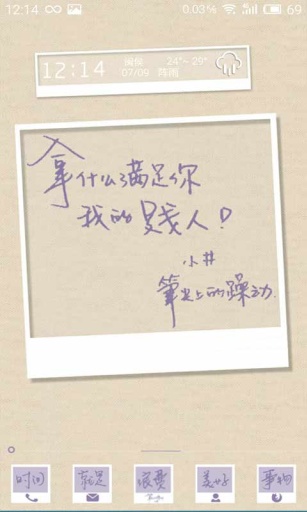 12:14 0.03% 69
12:14 闽侯 24°~29°
07/09 阵雨
拿什么满足你
我的贱人！
小井
筆尖上的躁动.
时间 就是 浪费 美好 事物